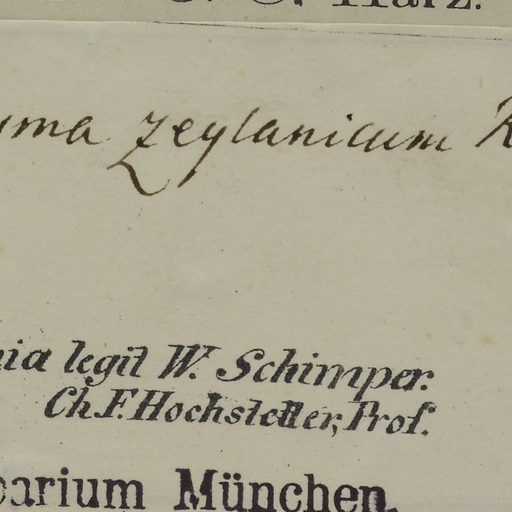 Harz.
uma zeylanicum R
nia legit W. Schimper.
Ch. F. Hochstetter, Prof.
barium München.